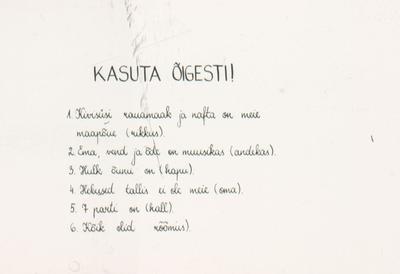 KASUTA ÕIGESTI!
1. Kivisüsi rauamaak ja nafta on meie
maapõue (rikkus).
2. Ema, vend ja õde on muusikas (andekas).
3. Hulk õunu on (hapu).
4. Hobused tallis ei ole meie (oma).
5. 7 parti on (hall).
6. Kõik olid rõõmus).